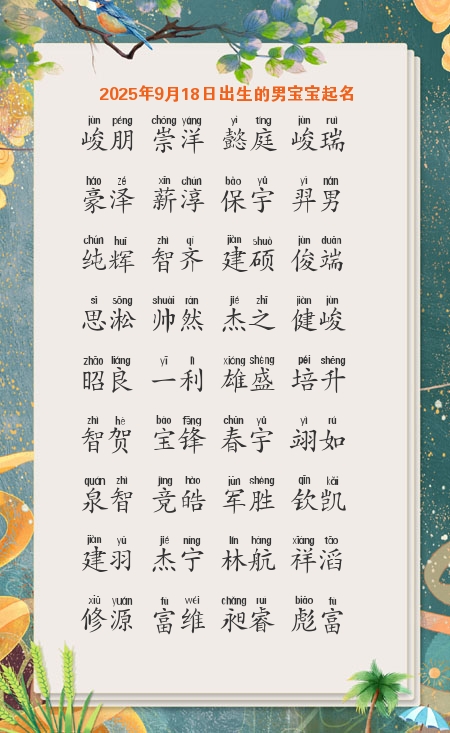 2025年9月18日出生的男宝宝起名
jùn péng chóng yáng yì tíng jùn ruì
峻朋 崇洋 懿庭 峻瑞
háo zé xīn chún bǎo yǔ yì nán
豪泽 薪淳 保宇 羿男
chún huī zhì qí jiàn shuò jùn duān
纯辉 智齐 建硕 俊端
sī sōng shuài rán jié zhī jiàn jùn
思淞 帅然 杰之 健峻
zhāo liáng yī lì xióng shèng péi shēng
昭良 一利 雄盛 培升
zhì hè bǎo fēng chūn yǔ yì rú
智贺 宝锋 春宇 翊如
quán zhì jìng hào jūn shèng qīn kǎi
泉智 竞皓 军胜 钦凯
jiàn yǔ jié níng lín háng xiáng tāo
建羽 杰宁 林航 祥滔
xiū yuán fù wéi chǎng ruì biāo fù
修源 富维 昶睿 彪富